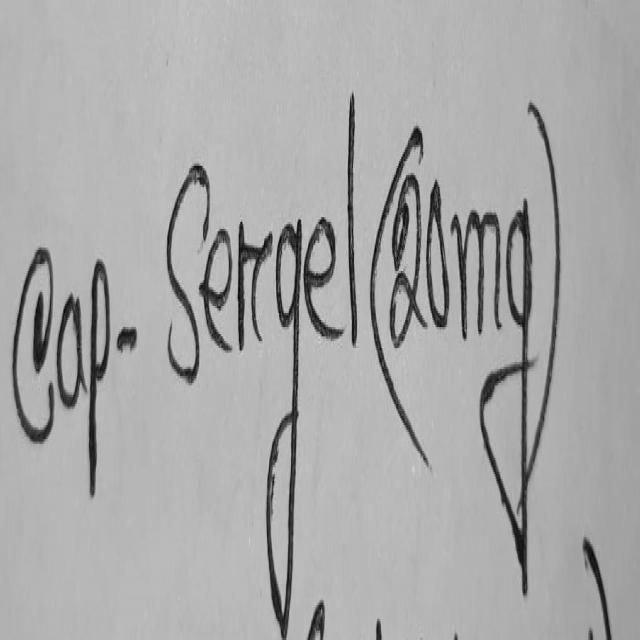 Cap- Sergel (20mg)